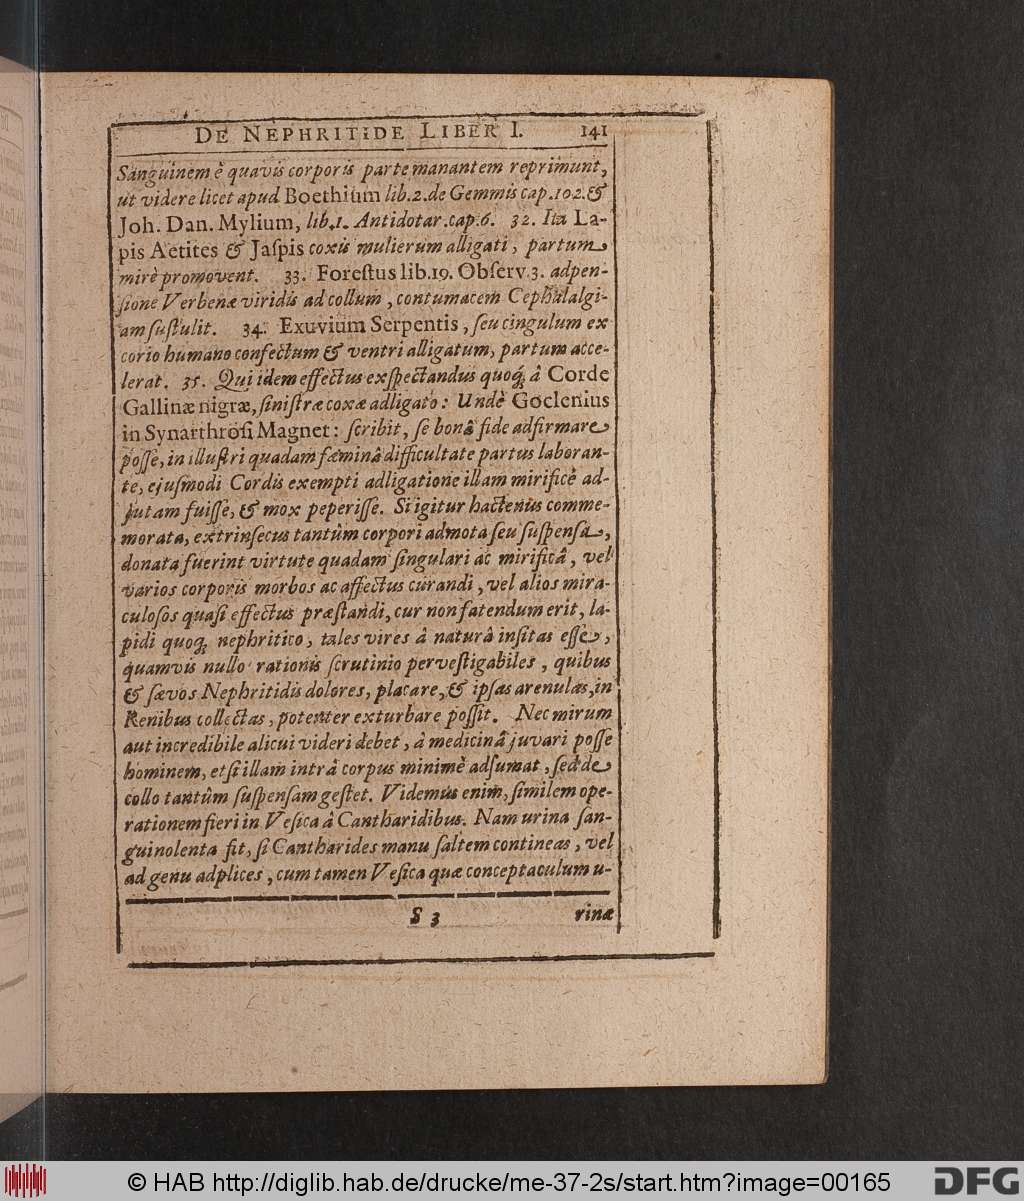 DE NEPHRITIDE LIBER I. 141
Sanguinem è quavis corporis parte manantem reprimunt,
ut videre licet apud Boethium lib.2. de Gemmis cap.102. &
Joh. Dan. Mylium, lib.1. Antidotar. cap.6. 32. Ita La-
pis Aetites & Jaſpis coxis mulierum alligati, partum
mirè promovent. 33. Foreſtus lib.19. Obſerv. 3. adpen-
ſione Verbenæ viridis ad collum, contumacem Cephalalgi-
am ſuſtulit. 34. Exuvium Serpentis, ſeu cingulum ex
corio humano confectum & ventri alligatum, partum acce-
lerat. 35. Qui idem effectus exſpectandus quoq; â Corde
Gallinæ nigræ, ſiniſtræ coxæ adligato: Undè Goclenius
in Synarthroſi Magnet: ſcribit, ſe bonâ fide adfirmare
poſſe, in illuſtri quadam fœminâ difficultate partus laboran-
te, ejuſmodi Cordis exempti adligatione illam mirificè ad-
jutam fuiſſe, & mox peperiſſe. Si igitur hactenus comme-
morata, extrinſecus tantûm corpori admota ſeu ſuſpenſa,
donata fuerint virtute quadam ſingulari ac mirificâ, vel
varios corporis morbos ac affectus curandi, vel alios mira-
culoſos quaſi effectus præſtandi, cur non fatendum erit, la-
pidi quoq; nephritico, tales vires â naturâ inſitas eſſe,
quamvis nullo rationis ſcrutinio perveſtigabiles, quibus
& ſævos Nephritidis dolores, placare, & ipſas arenulas, in
Renibus collectas, potenter exturbare poſſit. Nec mirum
aut incredibile alicui videri debet, â medicinâ juvari poſſe
hominem, etſi illam intrâ corpus minimè adſumat, ſed de
collo tantûm ſuſpenſam geſtet. Videmus enim, ſimilem ope-
rationem fieri in Veſica â Cantharidibus. Nam urina ſan-
guinolenta fit, ſi Cantharides manu ſaltem contineas, vel
ad genu adplices, cum tamen Veſica quæ conceptaculum u-
S 3 rinæ
© HAB http://diglib.hab.de/drucke/me-37-2s/start.htm?image=00165
DFG